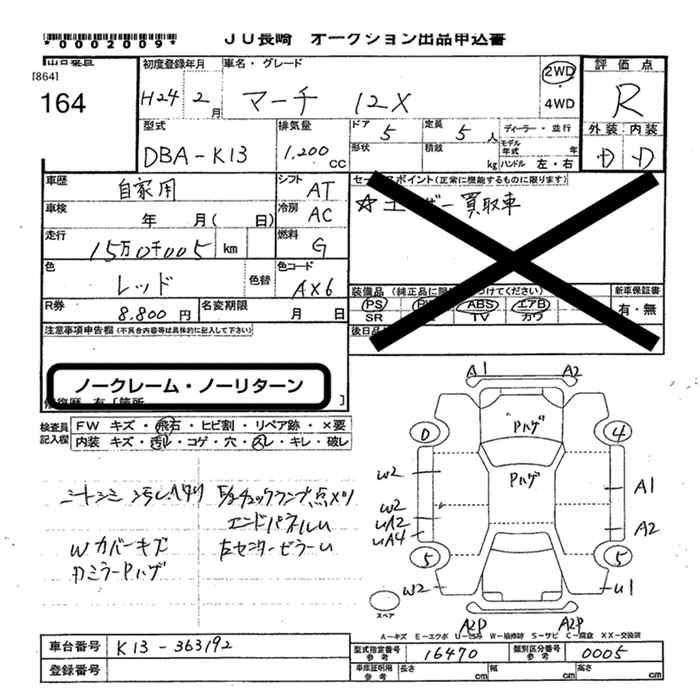 *0002009*
JU長崎 オークション出品申込書
[864]
164
初度登録年月
H24 2 月
車名・グレード
マーチ 12X
2WD
4WD
評価点
R
外装 内装
D D
型式
DBA-K13
排気量
1,200 cc
ドア 5
定員 5 人
形状
積載 kg
ディーラー・並行
モデル年式 年
ハンドル 左・右
車歴 自家用
シフト AT
車検 年 月( 日)
冷房 AC
走行 15万0千005 km
燃料 G
色 レッド
色替
色コード AX6
R券 8,800 円
名変期限 月 日
セールスポイント(正常に機能するものに限ります)
☆ユーザー買取車
装備品(純正品に限り○をつけてください)
PS PW ABS エアB
SR TV カワ
新車保証書
有・無
後日品
注意事項申告欄(不具合内容等は具体的に記入して下さい)
ノークレーム・ノーリターン
修復歴 有[箇所 ]
検査員記入欄
FW キズ・飛石・ヒビ割・リペア跡・×要
内装 キズ・汚れ・コゲ・穴・スレ・キレ・破し
エンドパネルU
Wカバーキズ
左センターピラーU
ミラーPハゲ
A1 A2
"Pハゲ
0 4
Pハゲ
W2
A1
W2
UA2
A2
UA4
5 5
W2
U1
スペア
A2P A2P
A-キズ E-エクボ U-凹み W-補修跡 S-サビ C-腐食 XX-交換済
車台番号 K13-363192
登録番号
型式指定番号 参考 16470
類別区分番号 参考 0005
車庫証明用 参考 長さ cm 幅 cm 高さ cm